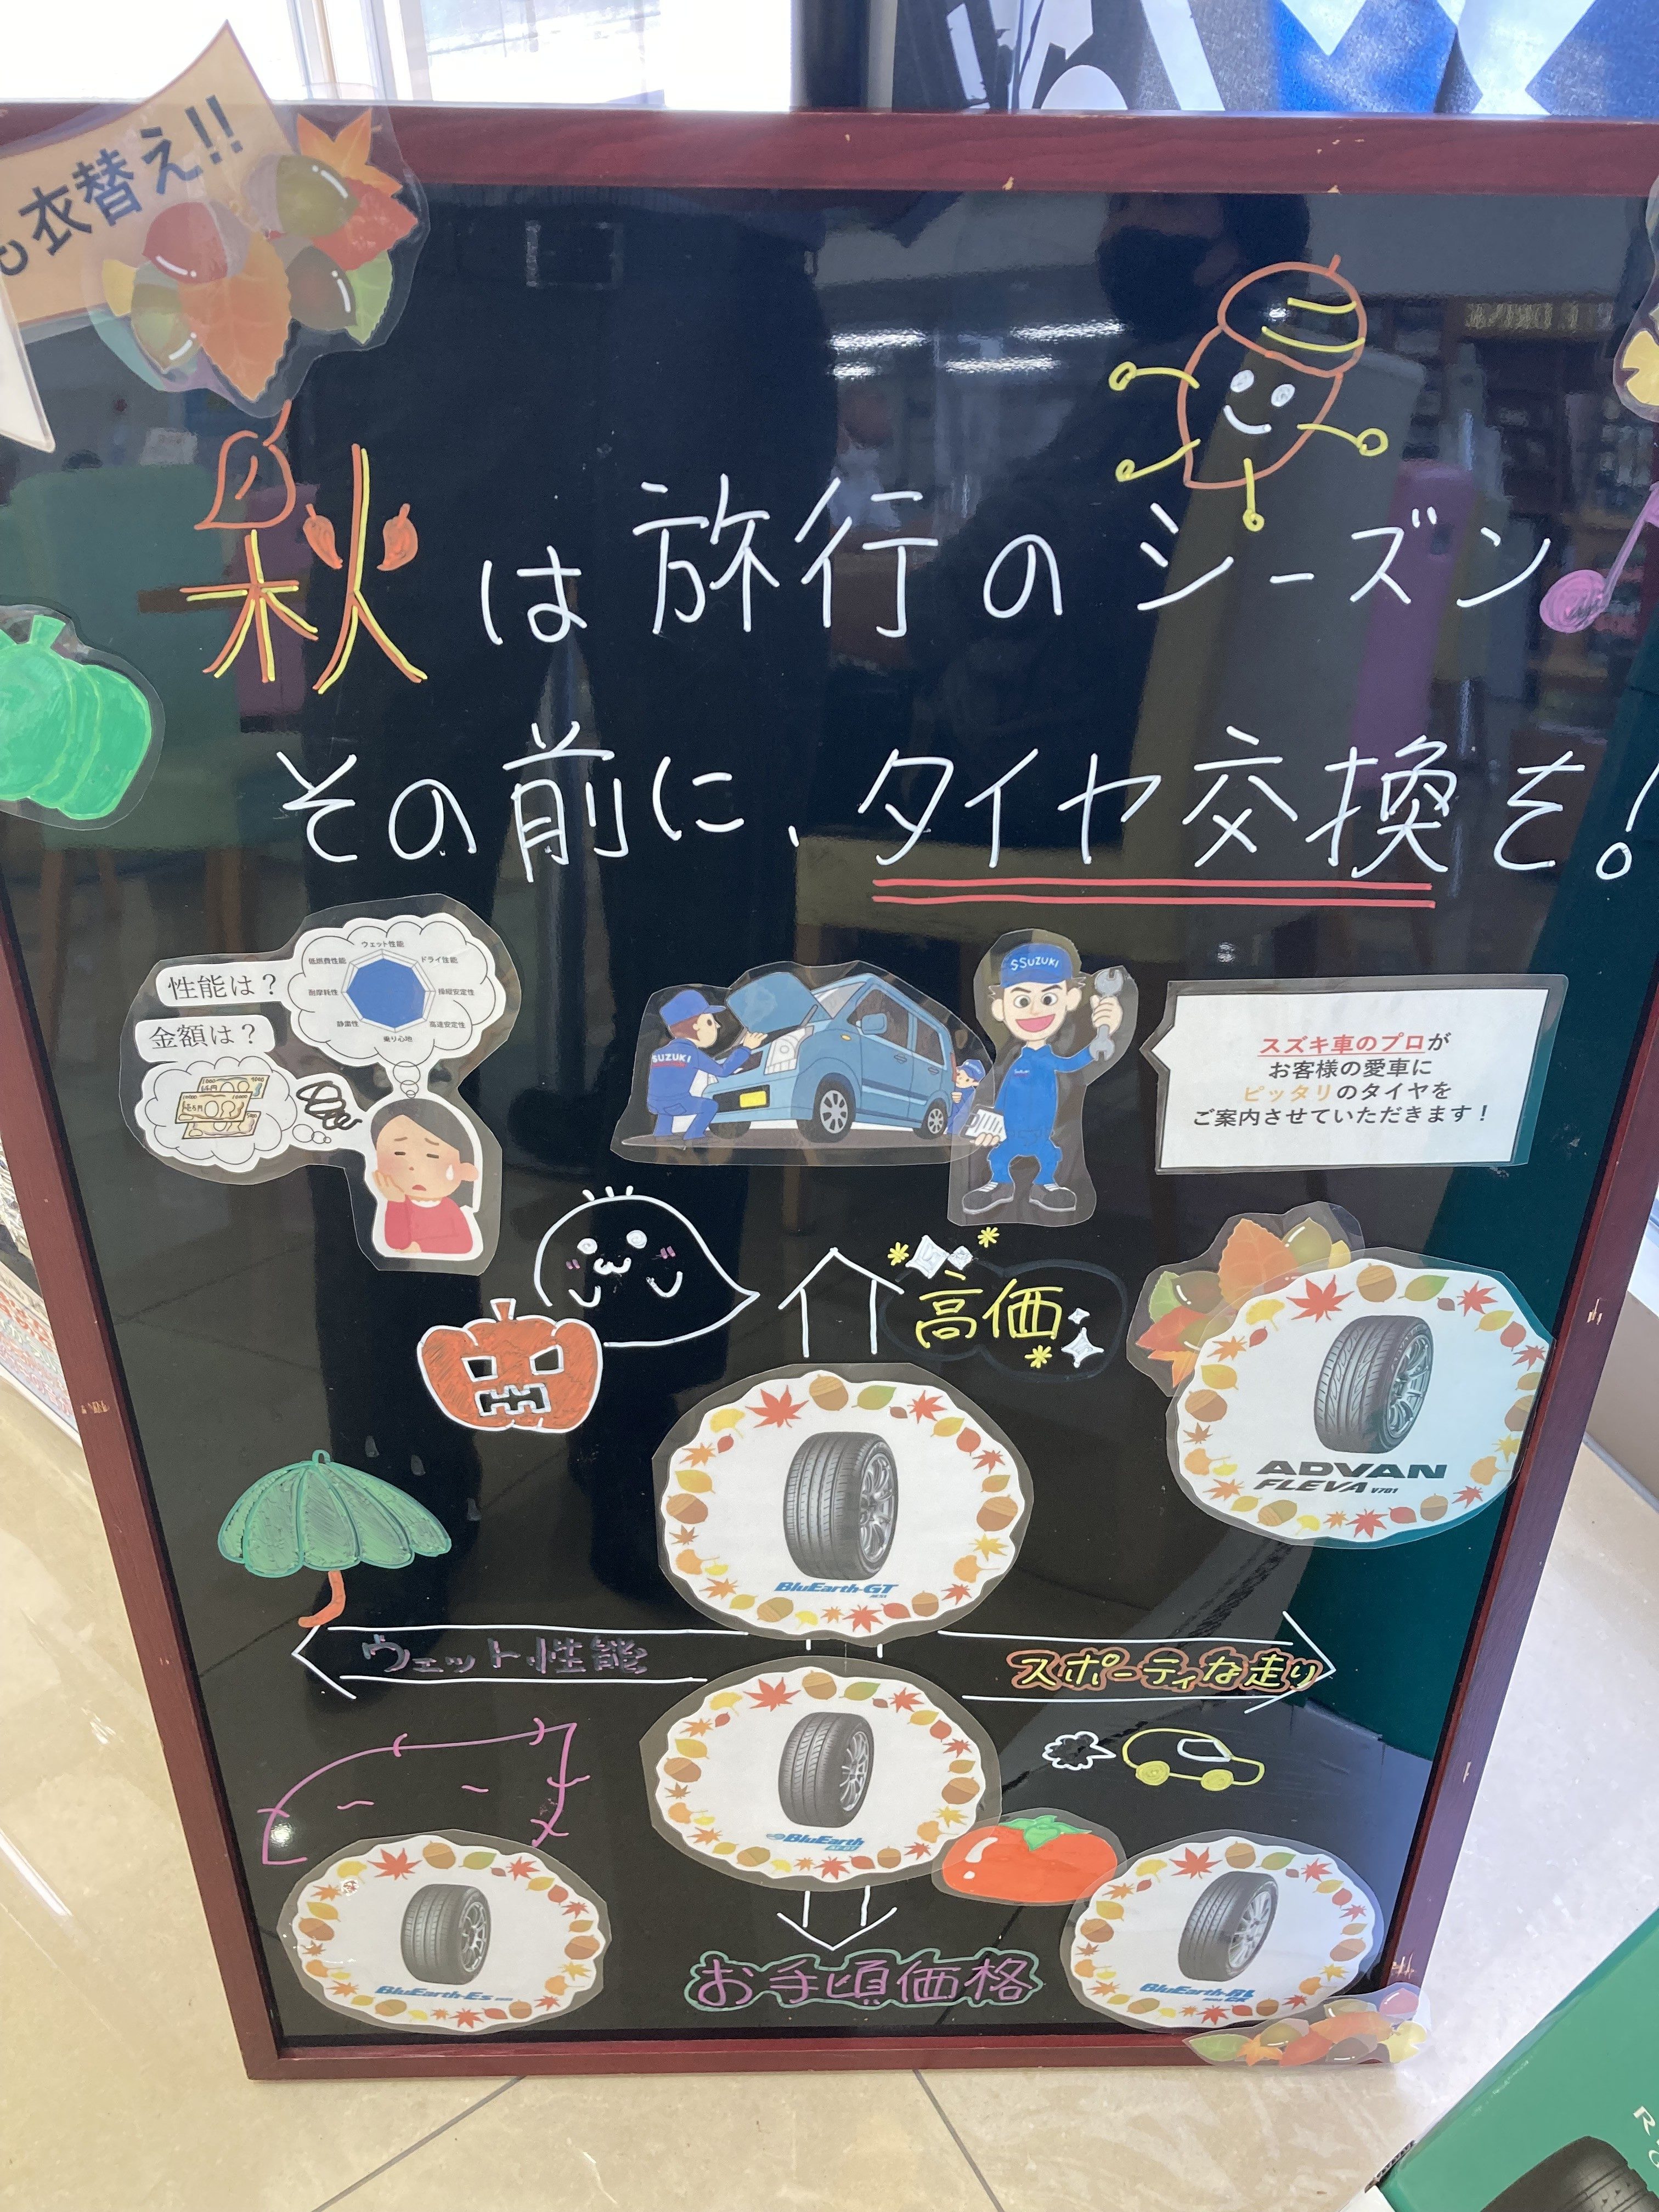 衣替え!!
秋は旅行のシーズン
その前に、タイヤ交換を!
性能は?
金額は?
ウェット性能
低燃費性能
ドライ性能
耐摩耗性
操縦安定性
静粛性
高速安定性
乗り心地
SUZUKI
SSUZUKI
スズキ車のプロが
お客様の愛車に
ピッタリのタイヤを
ご案内させていただきます!
高価
ADVAN
FLEVA V701
BluEarth-GT
ウェット性能
スポーティな走り
BluEarth
お手頃価格
BluEarth-Es
BluEarth-RV